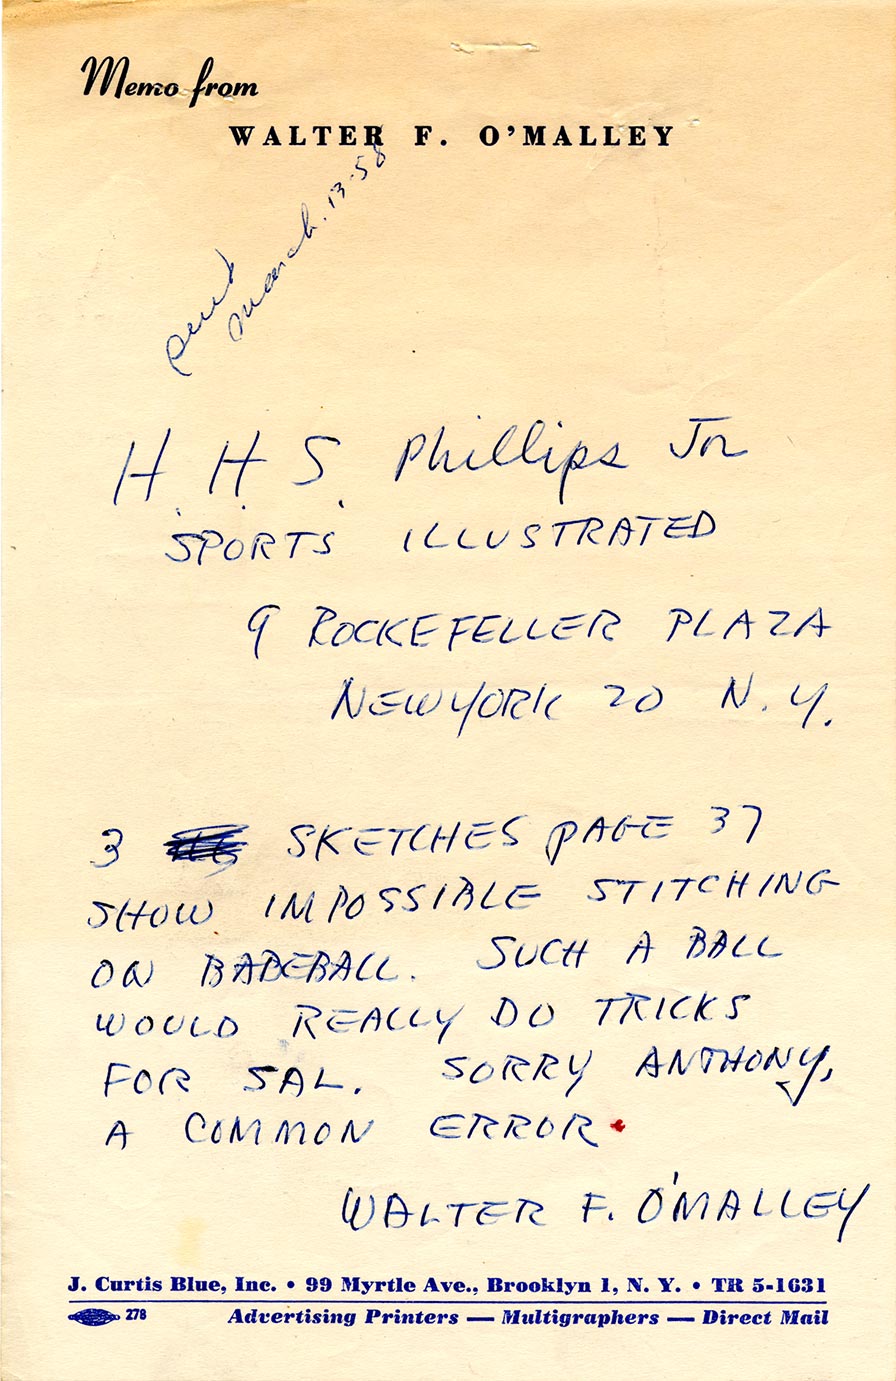 Memo from
WALTER F. O'MALLEY
sent
march. 13-58
H. H. S. Phillips Jr
SPORTS ILLUSTRATED
9 ROCKEFELLER PLAZA
NEW YORK 20 N.Y.
3 SKETCHES PAGE 37
SHOW IMPOSSIBLE STITCHING
ON BASEBALL. SUCH A BALL
WOULD REALLY DO TRICKS
FOR SAL. SORRY ANTHONY,
A COMMON ERROR.
WALTER F. O'MALLEY
J. Curtis Blue, Inc. • 99 Myrtle Ave., Brooklyn 1, N. Y. • TR 5-1631
278 Advertising Printers — Multigraphers — Direct Mail